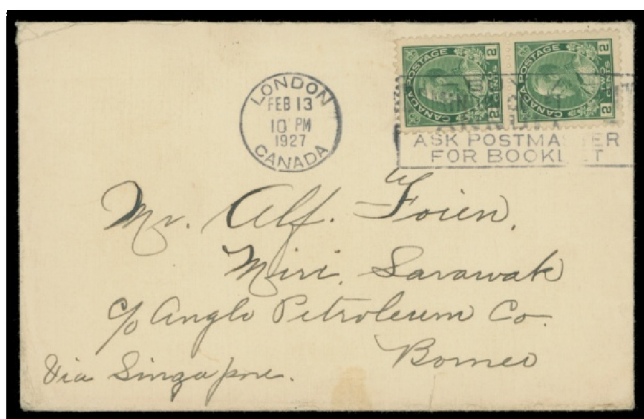 LONDON
FEB 13
10 PM
1927
CANADA
CANADA POSTAGE
2 CENTS 2
CANADA POSTAGE
2 CENTS 2
ASK POSTMASTER
FOR BOOKLET
Mr. Alf. Foien,
Miri, Sarawak
c/o Anglo Petroleum Co.
Borneo
Via Singapore.